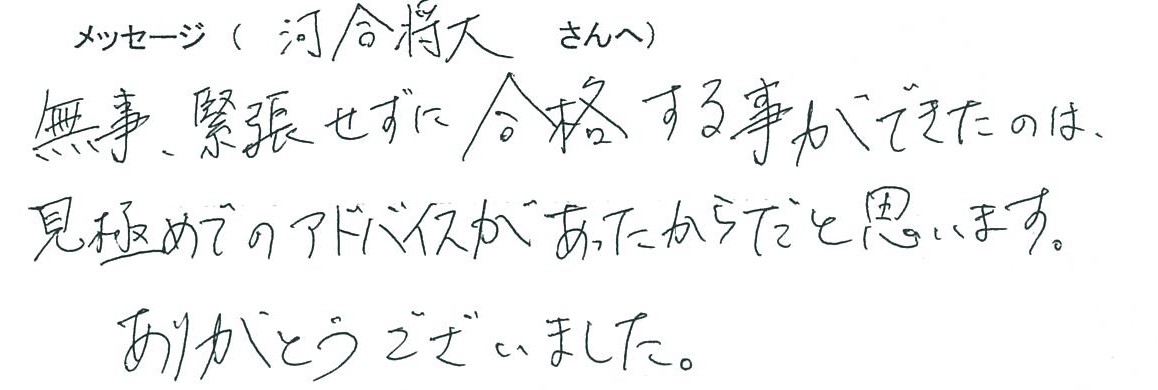 メッセージ（ 河合将大 さんへ）
無事、緊張せずに合格する事ができたのは、
見極めでのアドバイスがあったからだと思います。
ありがとうございました。